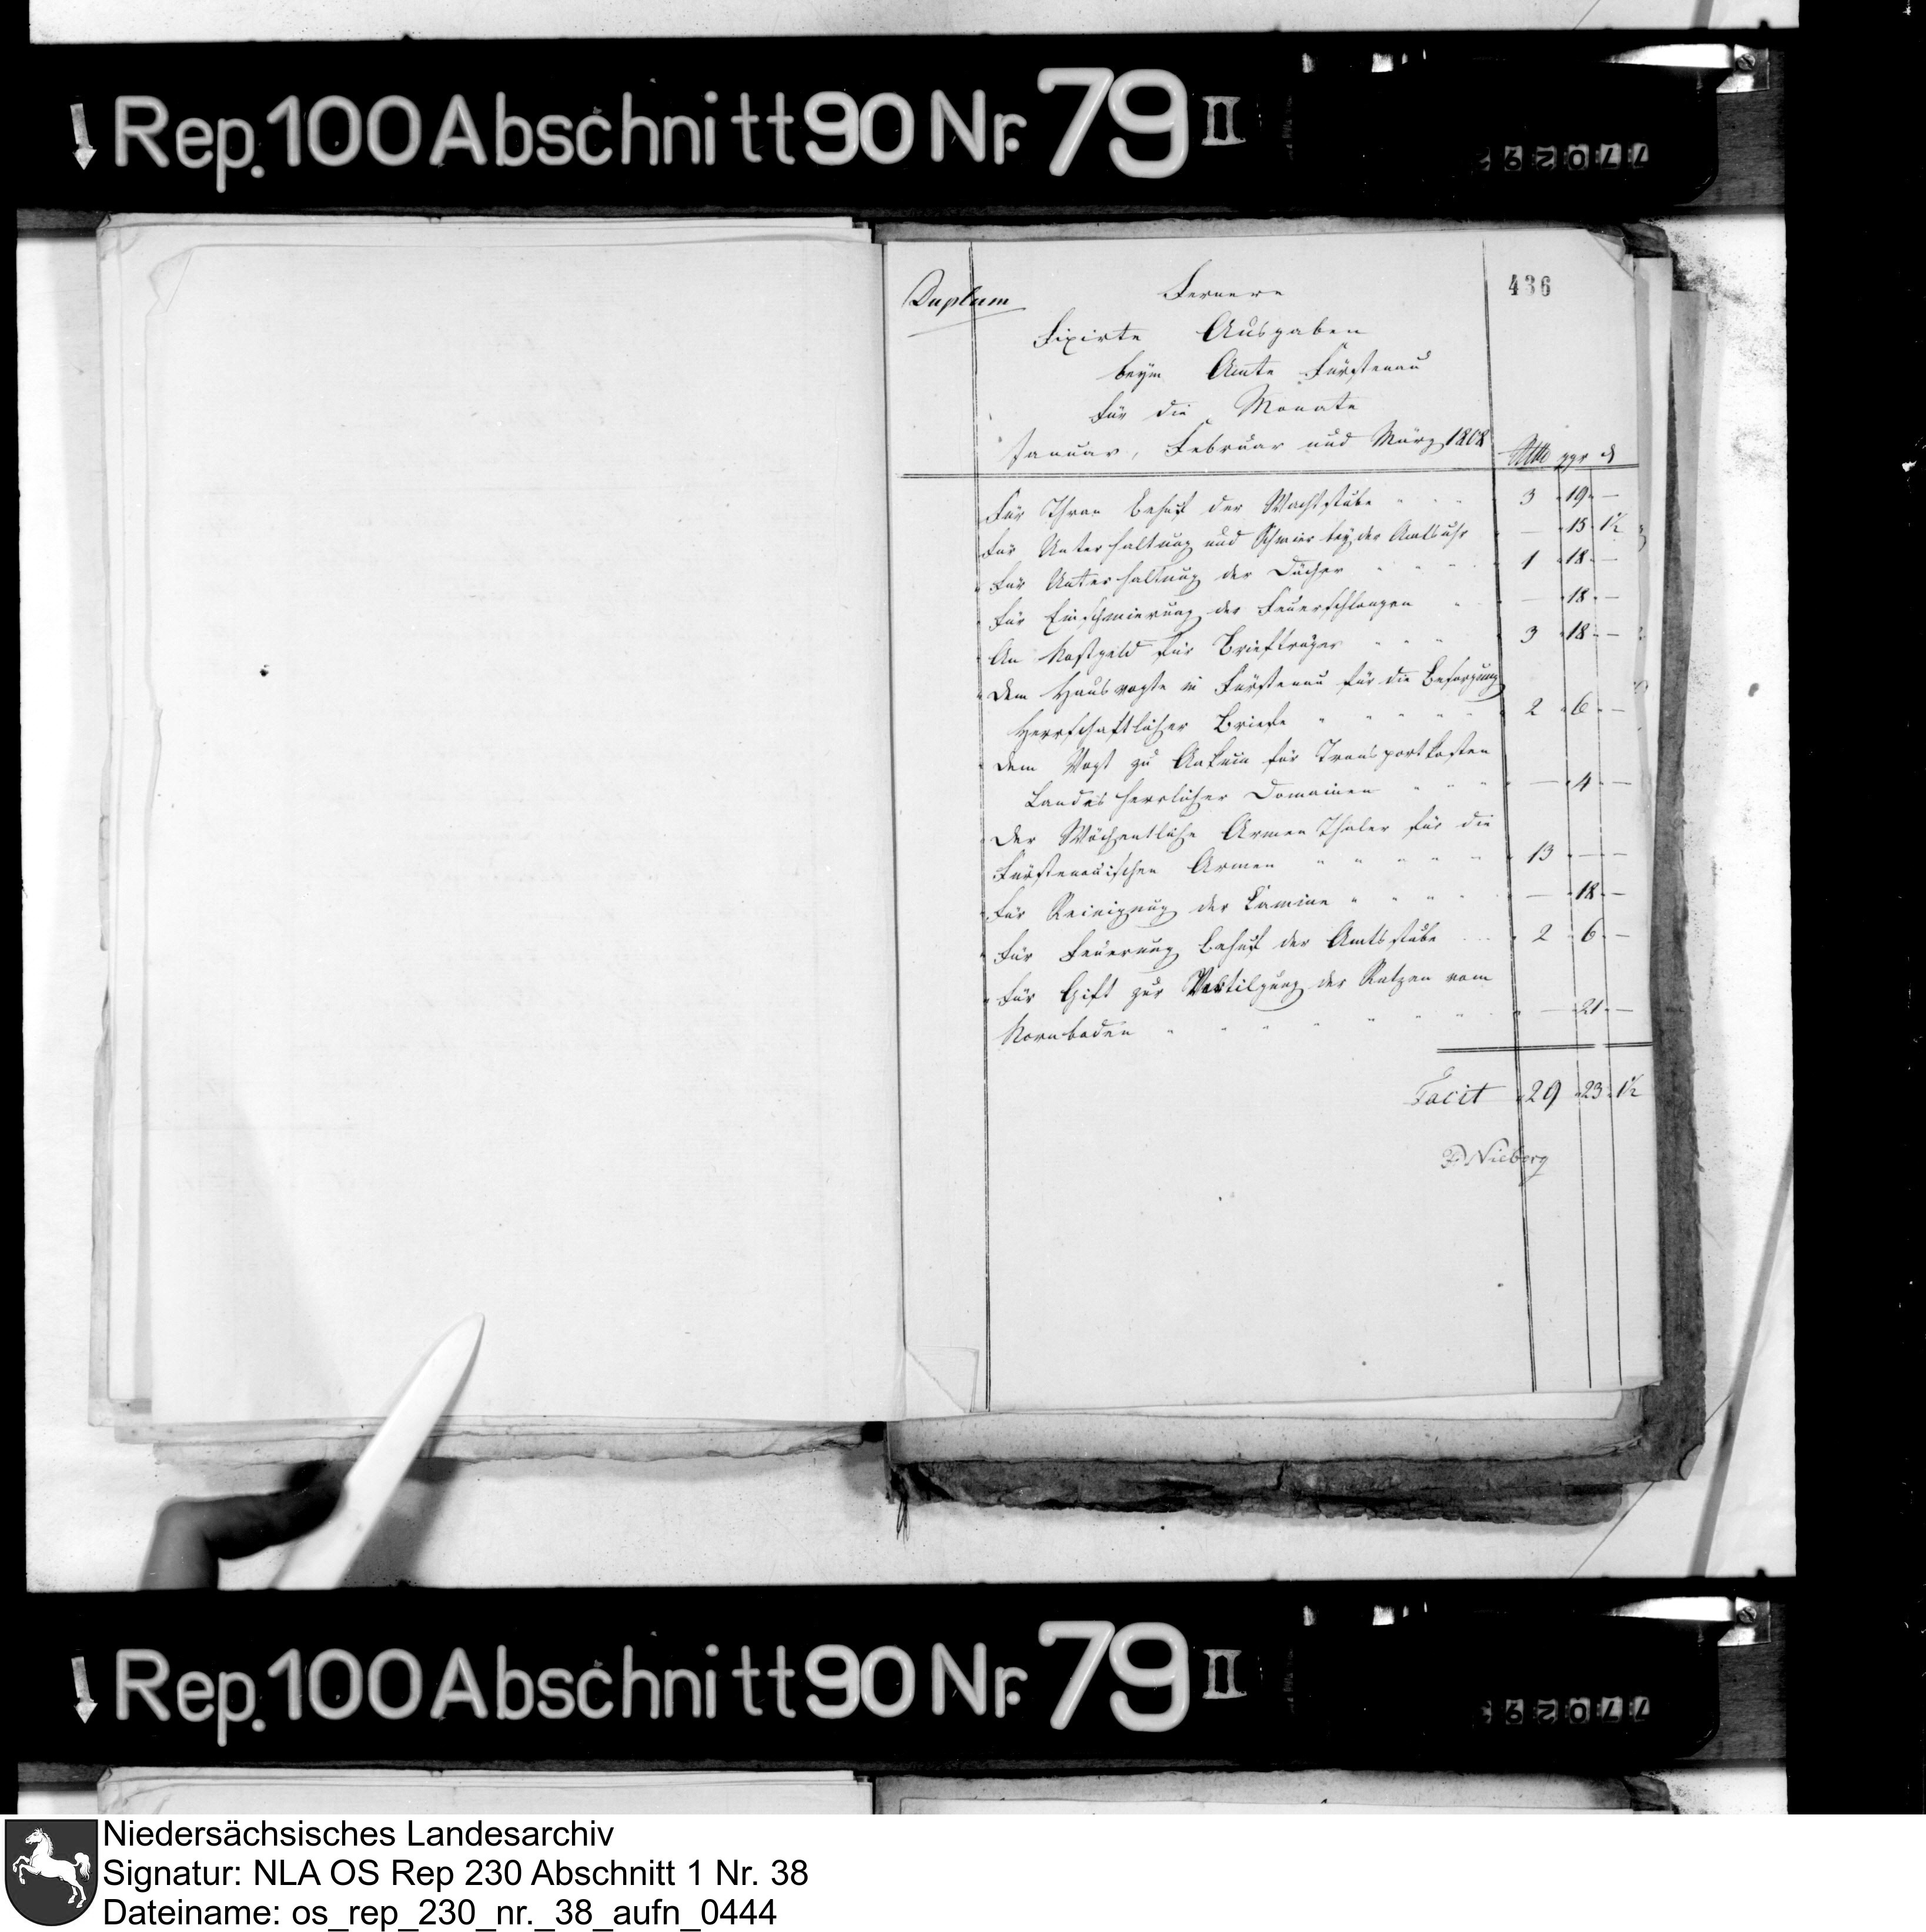 Rep. 100 Abschnitt 90 Nr. 79 II
77029
436
Duplum
Fernere
Fixirte Ausgaben
beym Amte Fürstenau
für die Monate
Januar, Februar und März 1808
Rthlr ggr d
Für Thran behuf der Wachtstube 3 19 —
für Unterhaltung und Schmier bey der Amtsuhr — 15 1½
für Unterhaltung der Dächer 1 18 —
für Einschmierung der Feuerschlangen — 18 —
An Kostgeld für Briefträger 3 18 —
Dem Hausvogte in Fürstenau für die Besorgung
Herrschaftlicher Briefe 2 6 —
Dem Vogt zu Ankum für Transportkosten
Landesherrlicher Domainen — 4 —
Der Wöchentliche Armen Thaler für die
Fürstenauischen Armen 13 — —
für Reinigung der Camine — 18 —
für Feuerung behuf der Amtsstube 2 6 —
für Gift zur Vertilgung der Ratzen vom
Kornboden — 21 —
Facit 29 23 1½
Nieberg
Rep. 100 Abschnitt 90 Nr. 79 II
77029
Niedersächsisches Landesarchiv
Signatur: NLA OS Rep 230 Abschnitt 1 Nr. 38
Dateiname: os_rep_230_nr._38_aufn_0444